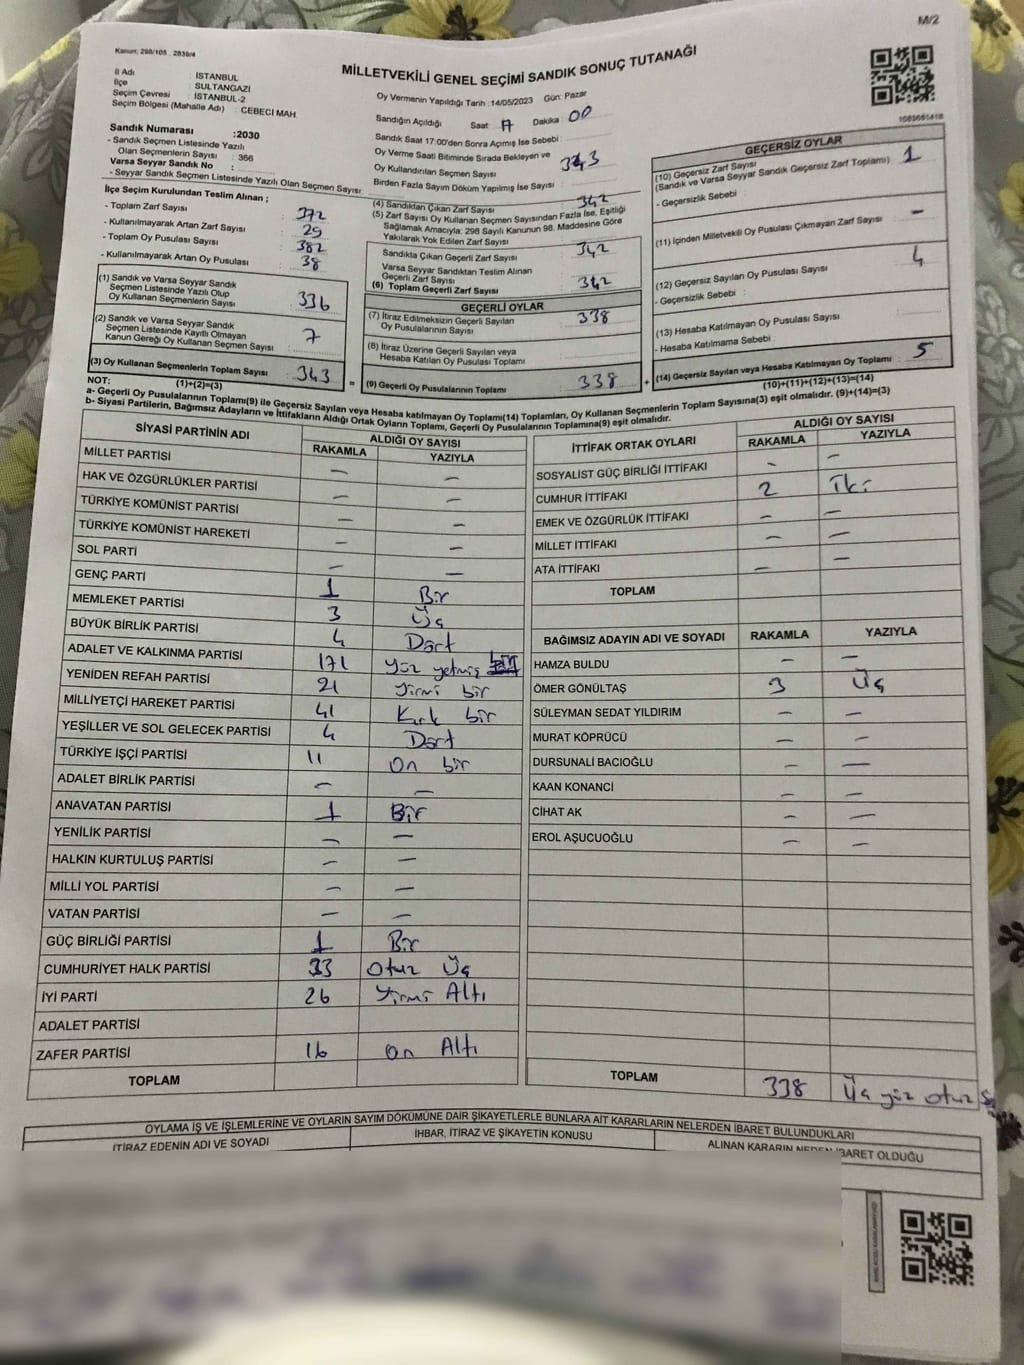 M/2
Kanun: 298/105 . 2839/4
MİLLETVEKİLİ GENEL SEÇİMİ SANDIK SONUÇ TUTANAĞI
İl Adı : İSTANBUL
İlçe : SULTANGAZİ
Seçim Çevresi : İSTANBUL-2
Seçim Bölgesi (Mahalle Adı) : CEBECİ MAH.
Sandık Numarası :2030
- Sandık Seçmen Listesinde Yazılı
Olan Seçmenlerin Sayısı : 366
Varsa Seyyar Sandık No :
- Seyyar Sandık Seçmen Listesinde Yazılı Olan Seçmen Sayısı :
İlçe Seçim Kurulundan Teslim Alınan ;
- Toplam Zarf Sayısı : 372
- Kullanılmayarak Artan Zarf Sayısı : 29
- Toplam Oy Pusulası Sayısı : 382
- Kullanılmayarak Artan Oy Pusulası : 38
(1) Sandık ve Varsa Seyyar Sandık
Seçmen Listesinde Yazılı Olup
Oy Kullanan Seçmenlerin Sayısı : 336
(2) Sandık ve Varsa Seyyar Sandık
Seçmen Listesinde Kayıtlı Olmayan
Kanun Gereği Oy Kullanan Seçmen Sayısı : 7
(3) Oy Kullanan Seçmenlerin Toplam Sayısı : 343
(1)+(2)=(3)
Oy Vermenin Yapıldığı Tarih :14/05/2023 Gün: Pazar
Sandığın Açıldığı Saat 17 Dakika 00
Sandık Saat 17:00'den Sonra Açımış İse Sebebi :
Oy Verme Saati Bitiminde Sırada Bekleyen ve
Oy Kullandırılan Seçmen Sayısı : 343
Birden Fazla Sayım Döküm Yapılmış İse Sayısı :
(4) Sandıktan Çıkan Zarf Sayısı : 342
(5) Zarf Sayısı Oy Kullanan Seçmen Sayısından Fazla İse, Eşitliği
Sağlamak Amacıyla: 298 Sayılı Kanunun 98. Maddesine Göre
Yakılarak Yok Edilen Zarf Sayısı :
Sandıkta Çıkan Geçerli Zarf Sayısı : 342
Varsa Seyyar Sandıktan Teslim Alınan
Geçerli Zarf Sayısı :
(6) Toplam Geçerli Zarf Sayısı : 342
GEÇERLİ OYLAR
(7) İtiraz Edilmeksizin Geçerli Sayılan
Oy Pusulalarının Sayısı : 338
(8) İtiraz Üzerine Geçerli Sayılan veya
Hesaba Katılan Oy Pusulası Toplamı :
= (9) Geçerli Oy Pusulalarının Toplamı : 338
1685681418
GEÇERSİZ OYLAR
(10) Geçersiz Zarf Sayısı
(Sandık ve Varsa Seyyar Sandık Geçersiz Zarf Toplamı) : 1
- Geçersizlik Sebebi :
(11) İçinden Milletvekili Oy Pusulası Çıkmayan Zarf Sayısı : –
(12) Geçersiz Sayılan Oy Pusulası Sayısı : 4
- Geçersizlik Sebebi :
(13) Hesaba Katılmayan Oy Pusulası Sayısı :
- Hesaba Katılmama Sebebi :
+ (14) Geçersiz Sayılan veya Hesaba Katılmayan Oy Toplamı : 5
(10)+(11)+(12)+(13)=(14)
NOT:
a- Geçerli Oy Pusulalarının Toplamı(9) ile Geçersiz Sayılan veya Hesaba katılmayan Oy Toplamı(14) Toplamları, Oy Kullanan Seçmenlerin Toplam Sayısına(3) eşit olmalıdır. (9)+(14)=(3)
b- Siyasi Partilerin, Bağımsız Adayların ve İttifakların Aldığı Ortak Oyların Toplamı, Geçerli Oy Pusulalarının Toplamına(9) eşit olmalıdır.
SİYASİ PARTİNİN ADI ALDIĞI OY SAYISI
RAKAMLA YAZIYLA
MİLLET PARTİSİ – –
HAK VE ÖZGÜRLÜKLER PARTİSİ – –
TÜRKİYE KOMÜNİST PARTİSİ – –
TÜRKİYE KOMÜNİST HAREKETİ – –
SOL PARTİ – –
GENÇ PARTİ 1 Bir
MEMLEKET PARTİSİ 3 Üç
BÜYÜK BİRLİK PARTİSİ 4 Dört
ADALET VE KALKINMA PARTİSİ 171 yüz yetmiş
YENİDEN REFAH PARTİSİ 21 yirmi bir
MİLLİYETÇİ HAREKET PARTİSİ 41 Kırk bir
YEŞİLLER VE SOL GELECEK PARTİSİ 4 Dört
TÜRKİYE İŞÇİ PARTİSİ 11 on bir
ADALET BİRLİK PARTİSİ – –
ANAVATAN PARTİSİ 1 Bir
YENİLİK PARTİSİ – –
HALKIN KURTULUŞ PARTİSİ – –
MİLLİ YOL PARTİSİ – –
VATAN PARTİSİ – –
GÜÇ BİRLİĞİ PARTİSİ 1 Bir
CUMHURİYET HALK PARTİSİ 33 Otuz Üç
İYİ PARTİ 26 Yirmi Altı
ADALET PARTİSİ
ZAFER PARTİSİ 16 on Altı
TOPLAM
İTTİFAK ORTAK OYLARI ALDIĞI OY SAYISI
RAKAMLA YAZIYLA
SOSYALİST GÜÇ BİRLİĞİ İTTİFAKI – –
CUMHUR İTTİFAKI 2 İki
EMEK VE ÖZGÜRLÜK İTTİFAKI – –
MİLLET İTTİFAKI – –
ATA İTTİFAKI – –
TOPLAM
BAĞIMSIZ ADAYIN ADI VE SOYADI RAKAMLA YAZIYLA
HAMZA BULDU – –
ÖMER GÖNÜLTAŞ 3 Üç
SÜLEYMAN SEDAT YILDIRIM – –
MURAT KÖPRÜCÜ – –
DURSUNALİ BACIOĞLU – –
KAAN KONANCİ – –
CİHAT AK – –
EROL AŞUCUOĞLU – –
TOPLAM 338 Üç yüz otuz
OYLAMA İŞ VE İŞLEMLERİNE VE OYLARIN SAYIM DÖKÜMÜNE DAİR ŞİKAYETLERLE BUNLARA AİT KARARLARIN NELERDEN İBARET BULUNDUKLARI
İTİRAZ EDENİN ADI VE SOYADI İHBAR, İTİRAZ VE ŞİKAYETİN KONUSU ALINAN KARARIN NEDEN İBARET OLDUĞU